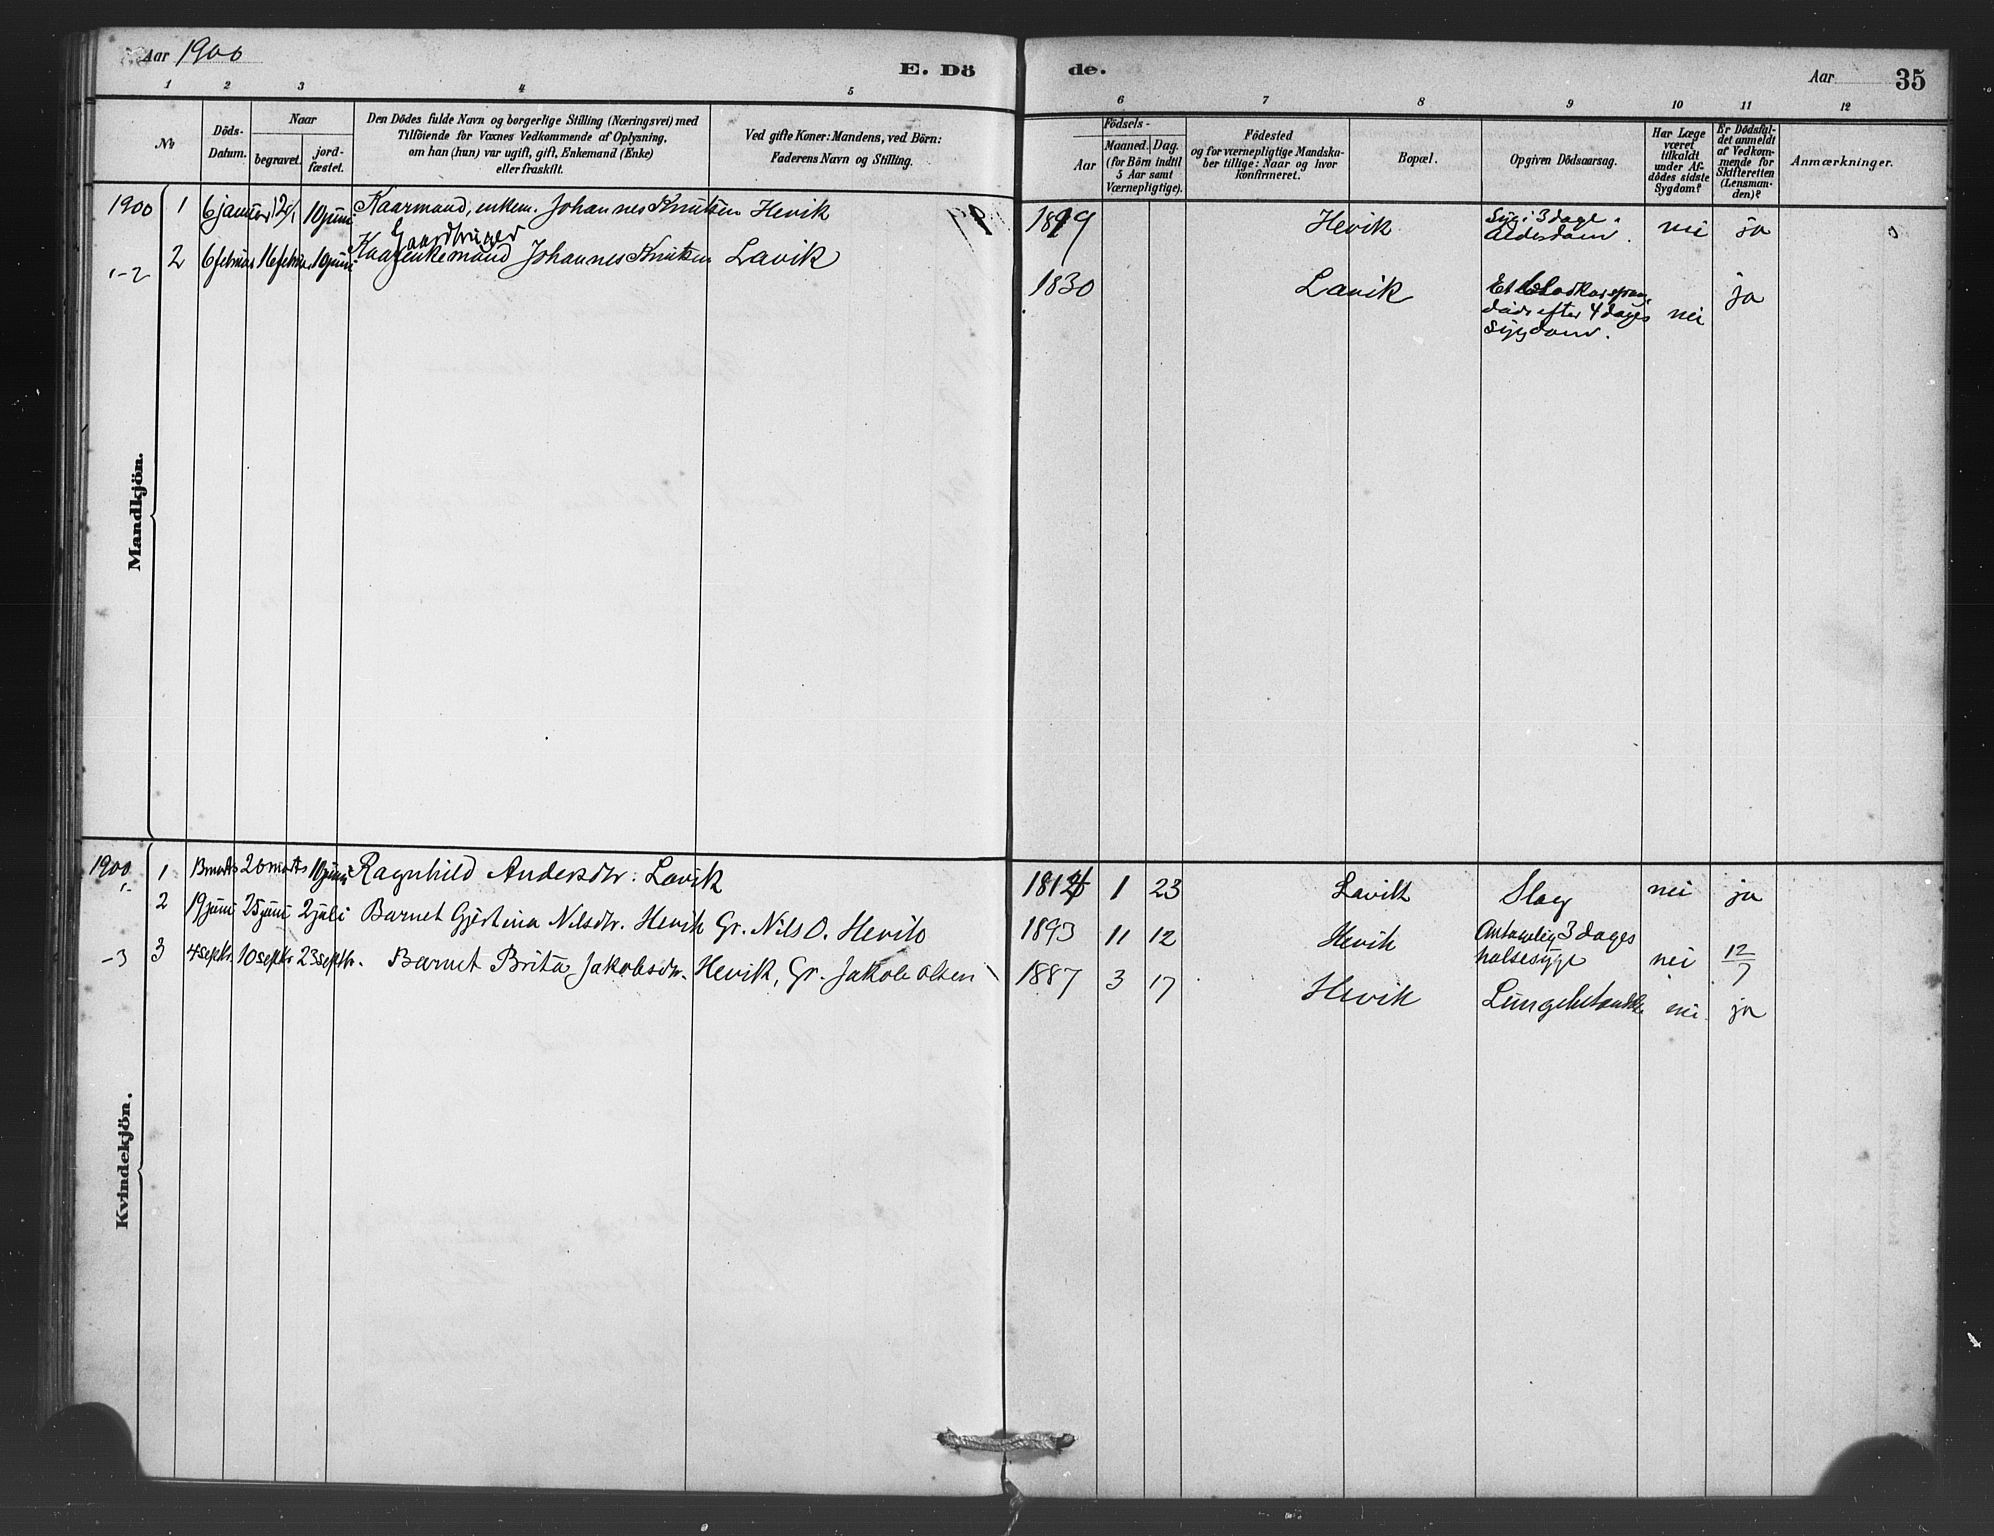 Aar 1900
E. Dö de.
Aar 35
1 2 3 4 5 6 7 8 9 10 11 12
No
Döds-Datum.
Naar
begravet.
jord-fæstet.
Den Dödes fulde Navn og borgerlige Stilling (Næringsvei) med
Tilföiende for Voxnes Vedkommende af Oplysning,
om han (hun) var ugift, gift, Enkemand (Enke)
eller fraskilt.
Ved gifte Koner: Mandens, ved Börn:
Faderens Navn og Stilling.
Födsels-
Aar
Maaned. Dag.
(for Börn indtil
5 Aar samt
Værnepligtige).
Födested
og for værnepligtige Mandska-
ber tillige: Naar og hvor
konfirmeret.
Bopæl.
Opgiven Dödsaarsag.
Har Læge
været
tilkaldt
under Af-
dödes sidste
Sygdom?
Er Dödsfal-
det anmeldt
af Vedkom-
mende for
Skifteretten
(Lensman-
den)?
Anmærkninger.
Mandkjön.
1900 1 6 januar 10 juni Kaarmand, enkem. Johannes Knutsen Hevik Hevik Syg i 3 dage. nei ja
Alderdom.
Gaardbruger
1-2 2 6 februar 16 februar 10 juni enkemand Johannes Knutsen Lavik 1830 Lavik Et Blodkar sprang ja
döde efter 4 dages nei
sygdom.
Kvindekjön.
1900 1 13 marts 20 marts 10 juni Ragnhild Andersdtr. Lavik 1 23 Lavik Slag nei ja
2 19 juni 25 juni 2 juli Barnet Gjertina Nilsdtr. Hevik Gr. Nils O. Hevik 1893 11 12 Hevik Antagelig 3 dages
halsesyge nei 12/7
-3 3 4 septbr. 10 septbr. 23 septbr. Barnet Brita Jakobsdtr. Hevik, Gr. Jakob Olsen 1887 3 17 Hevik Lungebetændelse nei ja